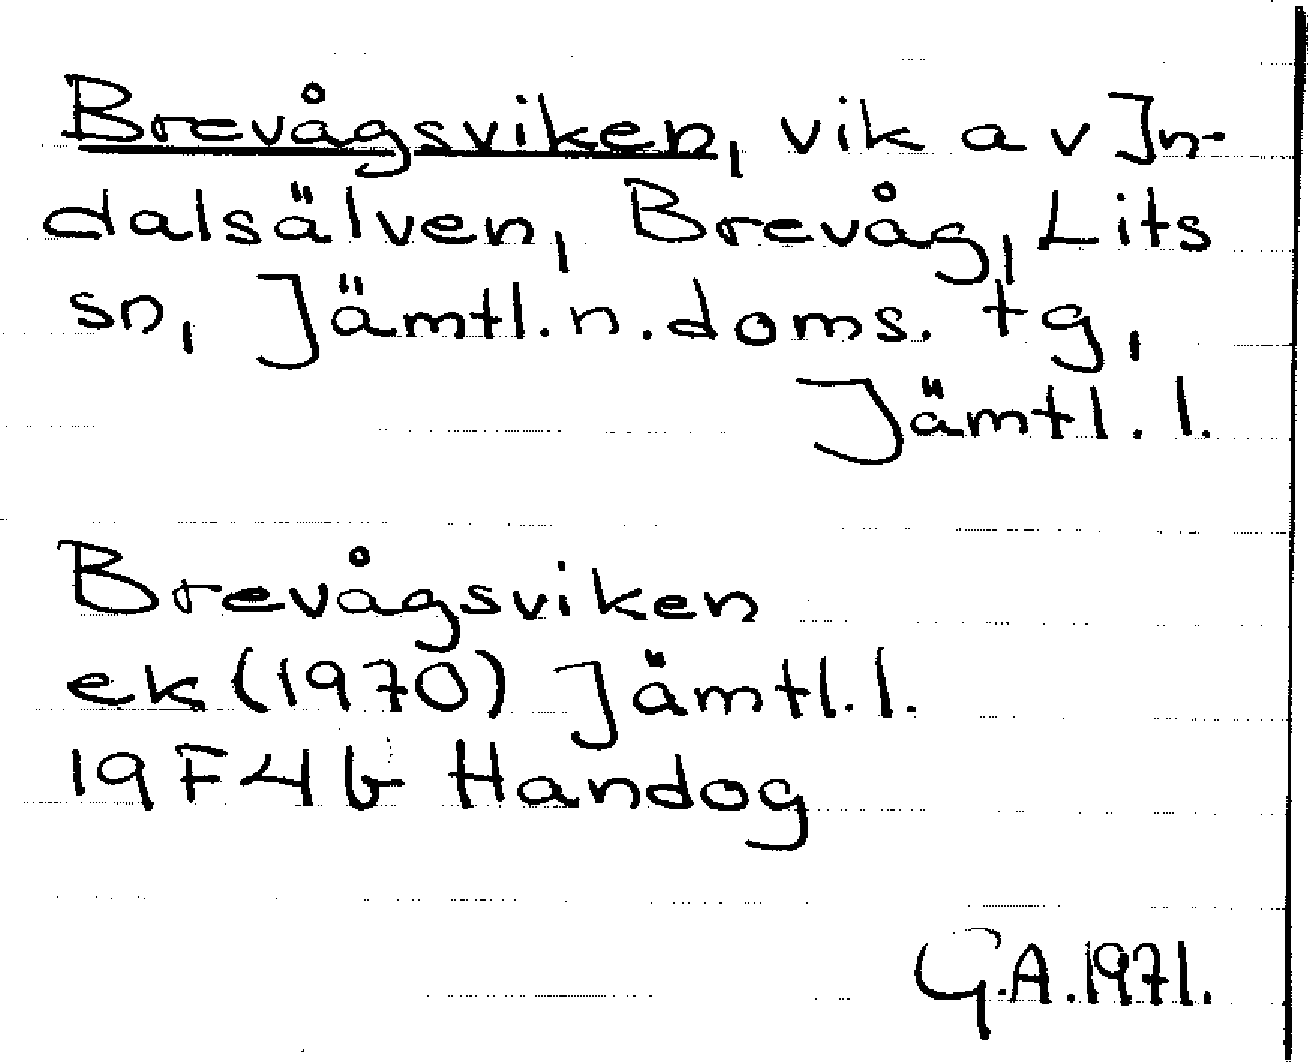 Brevågsviken, vik av In-
dalsälven, Brevåg, Lits
sn, Jämtl. n. doms. tg,
Jämtl. l.
Brevågsviken
ek (1970) Jämtl. l.
19F4b Handog
G.A. 1971.